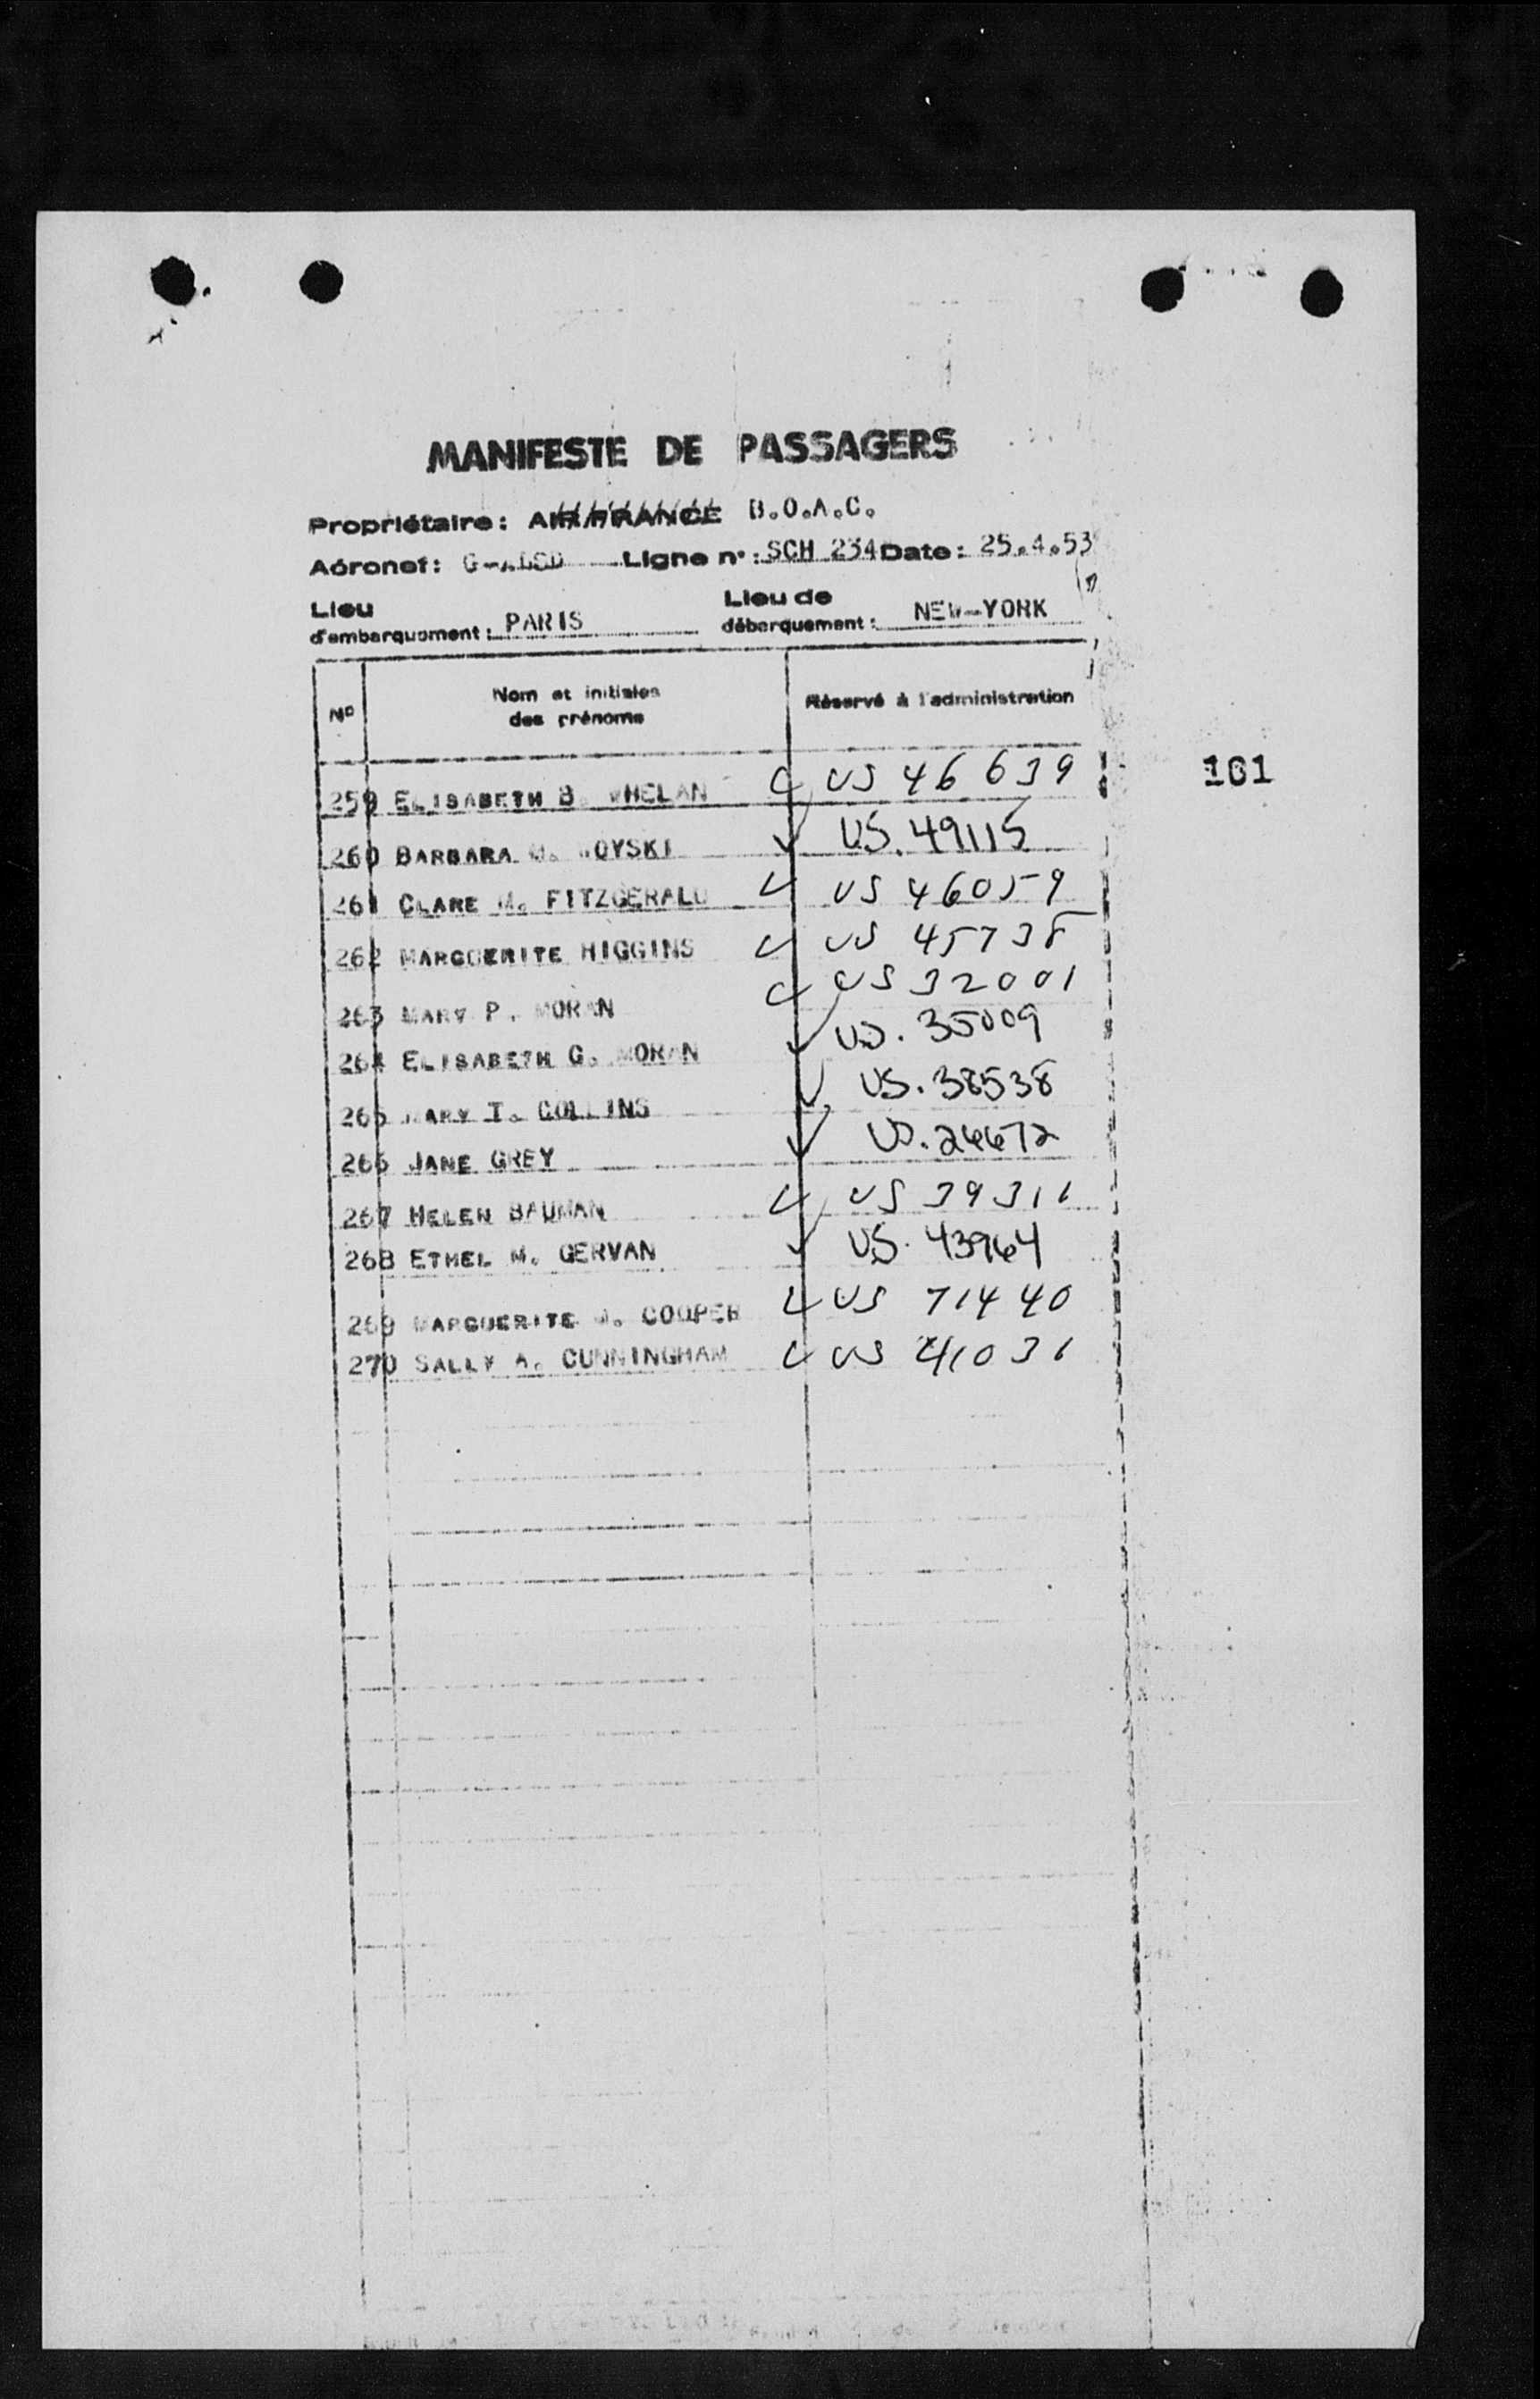 MANIFESTE DE PASSAGERS
Propriétaire: AIR FRANCE B.O.A.C.
Aéronef: Ligne n°: SCH 234 Date: 25.4.53
Lieu d'embarquement: PARIS Lieu de débarquement: NEW-YORK
No Nom et initiales des prénoms Réservé à l'administration
101
259 ELISABETH B. WHELAN US 46639
260 BARBARA US. 49115
261 CLARE M. FITZGERALD US 46059
262 MARGUERITE HIGGINS US 45738
263 MARY P. MORAN US 32001
264 ELISABETH G. MORAN US. 35009
265 MARY T. COLLINS US. 38538
266 JANE GREY US. 26672
267 HELEN BAUMAN US 39311
268 ETHEL M. GERVAN US. 43964
269 MARGUERITE COOPER US 71440
270 SALLY A. CUNNINGHAM US 41031